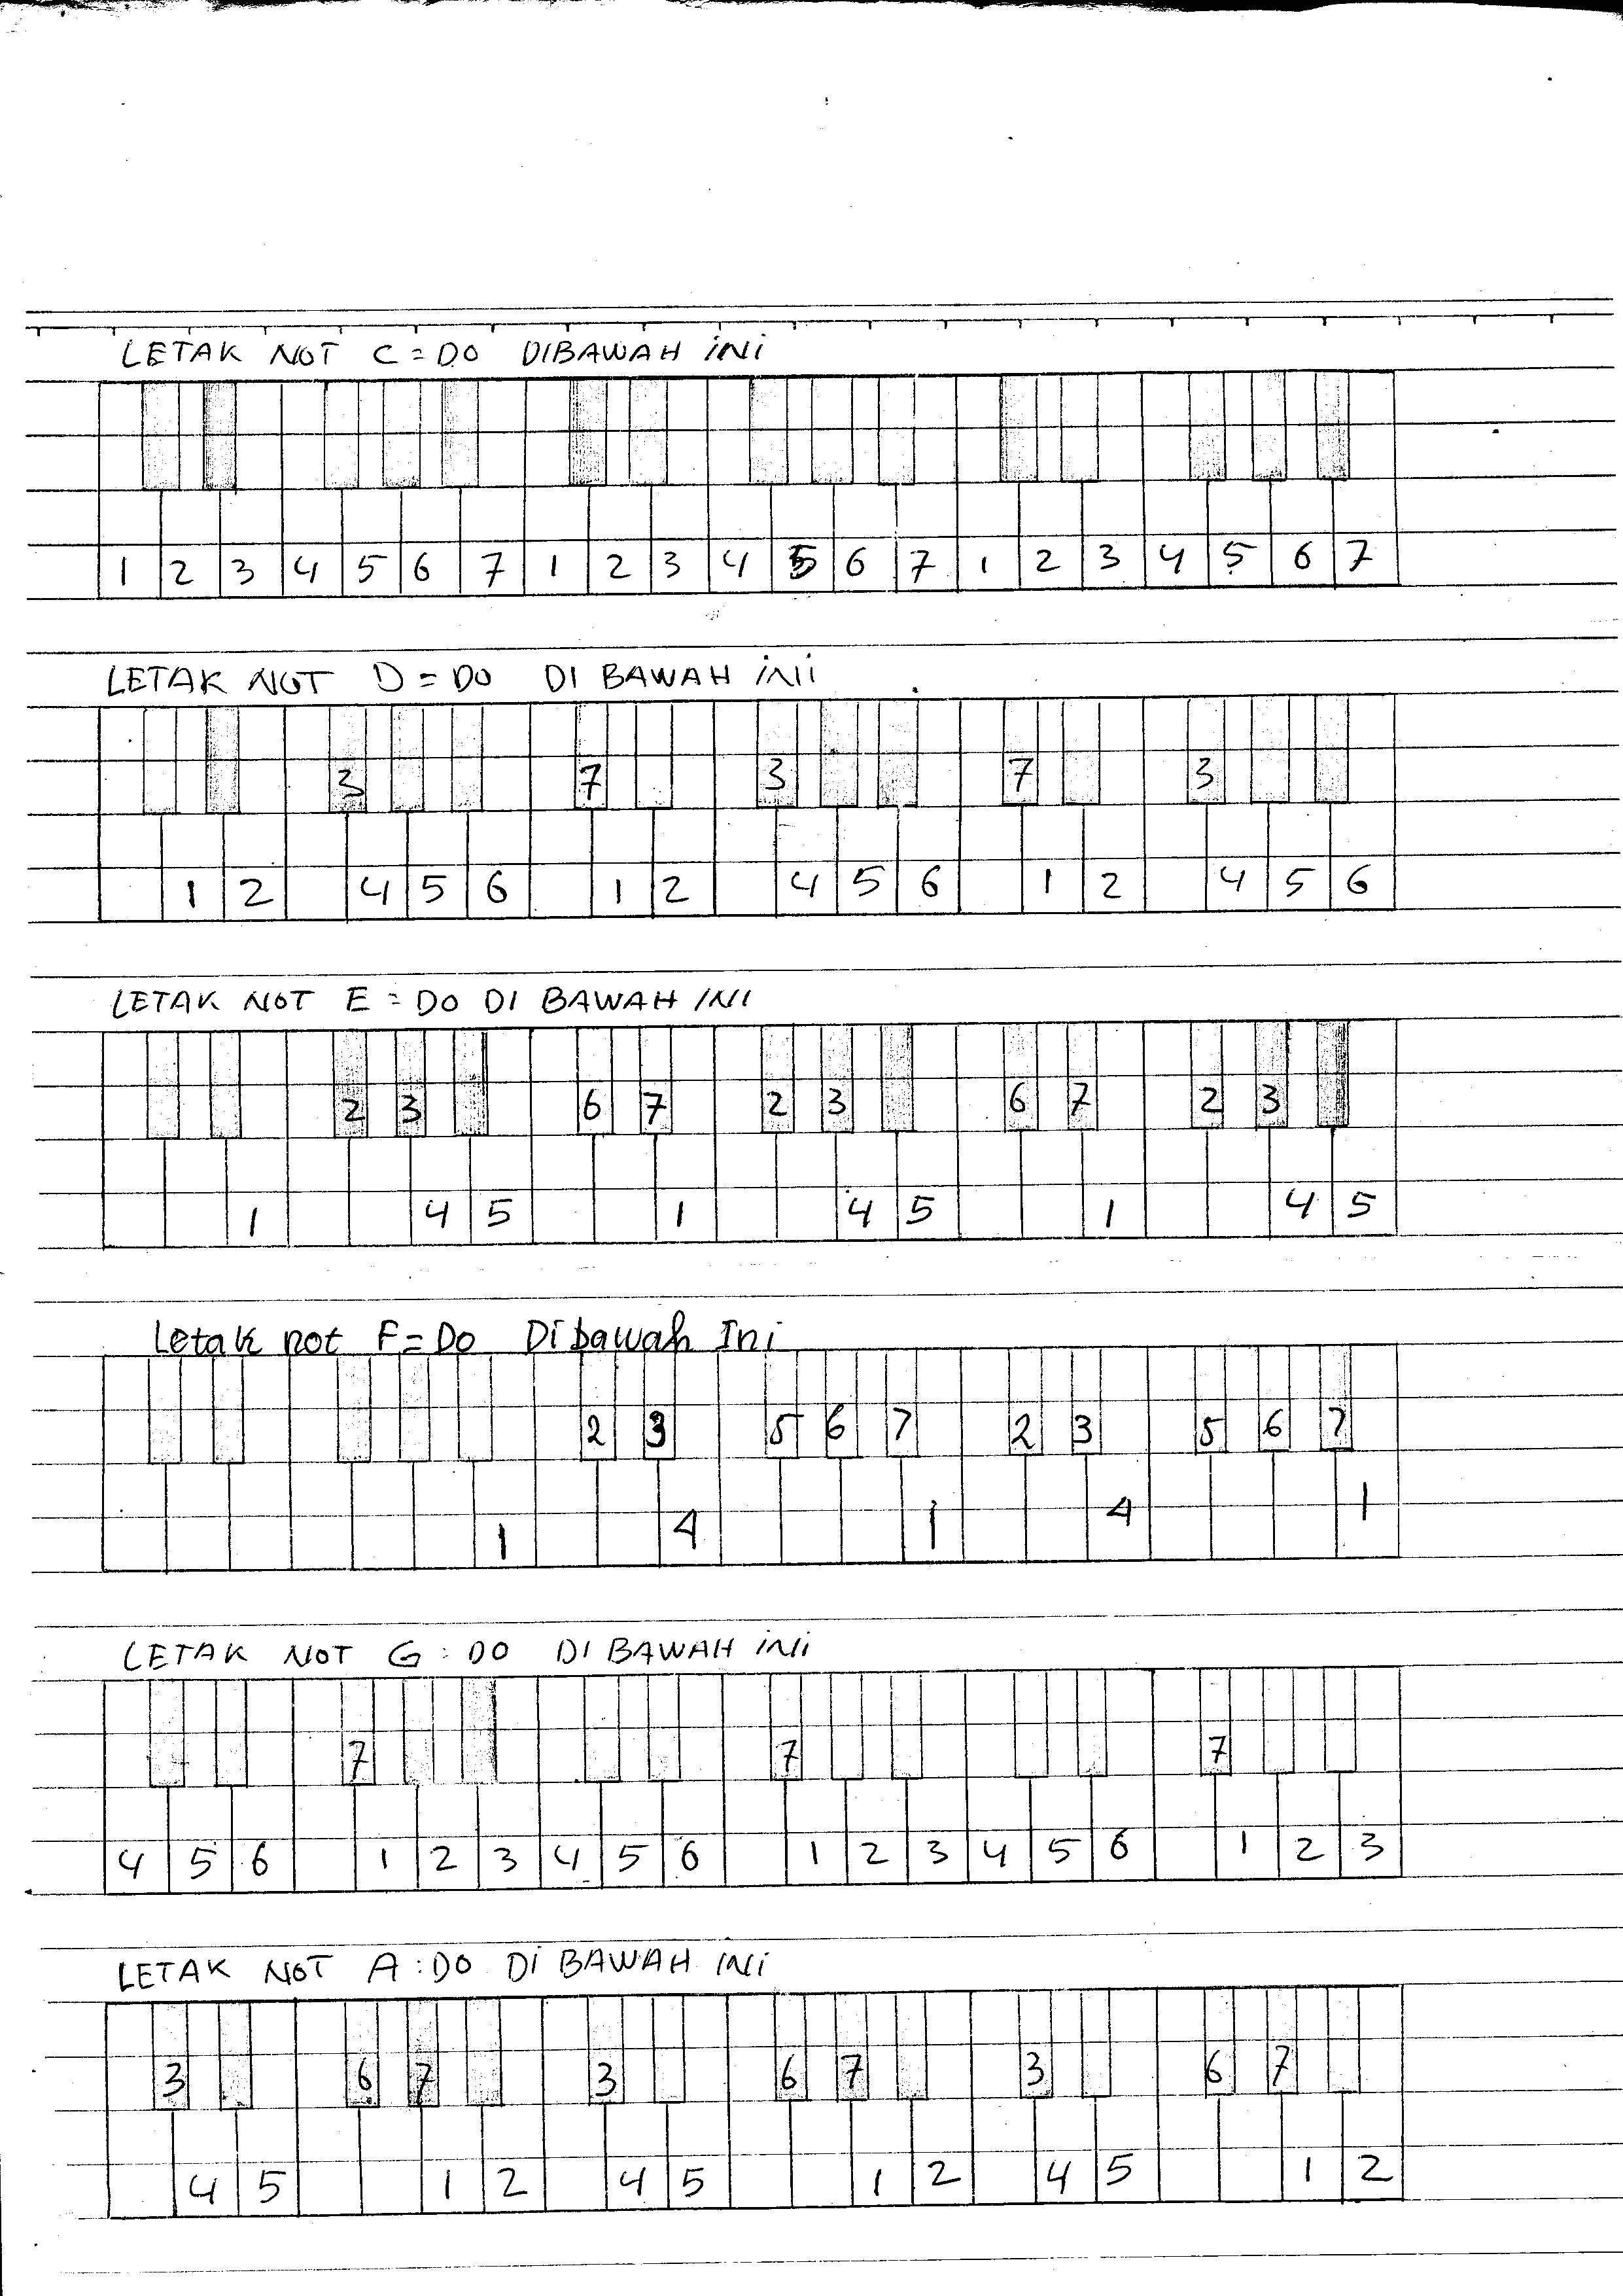 LETAK NOT C = DO DIBAWAH iNi
1 2 3 4 5 6 7 1 2 3 4 5 6 7 1 2 3 4 5 6 7
LETAK NOT D = DO DI BAWAH iNi
3 7 3 7 3
1 2 4 5 6 1 2 4 5 6 1 2 4 5 6
LETAK NOT E = DO DI BAWAH INI
2 3 6 7 2 3 6 7 2 3
1 4 5 1 4 5 1 4 5
Letak not F = Do Dibawah Ini
2 3 5 6 7 2 3 5 6 7
1 4 1 4 1
LETAK NOT G : DO DI BAWAH iNi
7 7 7
4 5 6 1 2 3 4 5 6 1 2 3 4 5 6 1 2 3
LETAK NOT A : DO Di BAWAH iNi
3 6 7 3 6 7 3 6 7
4 5 1 2 4 5 1 2 4 5 1 2